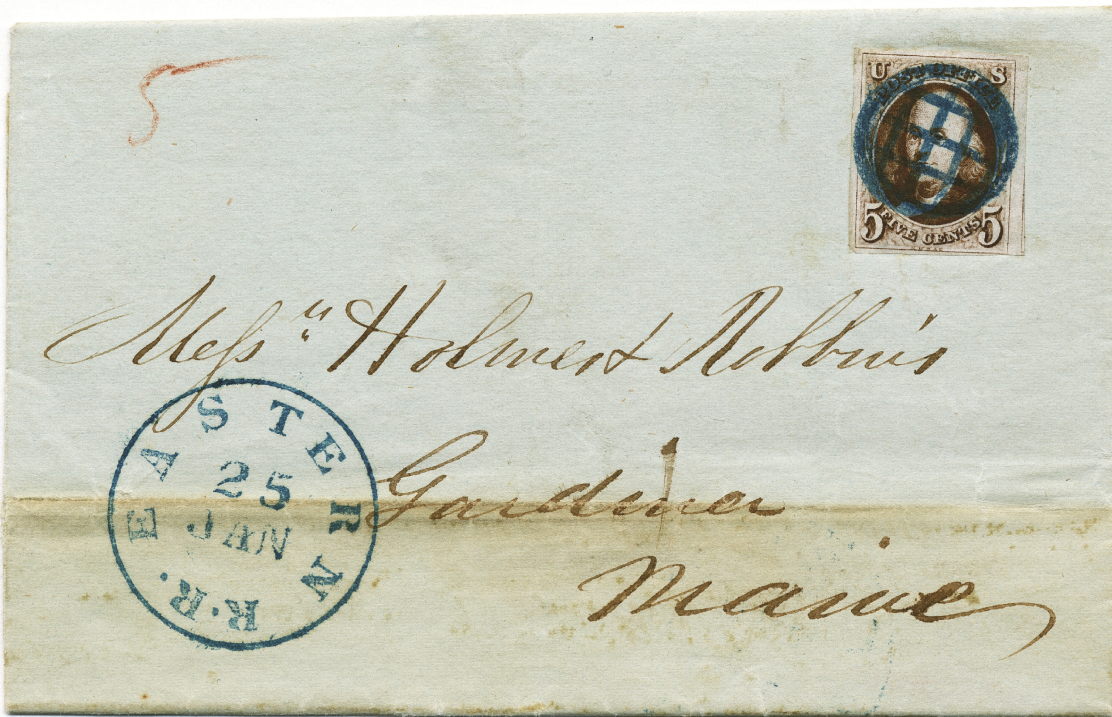 5
U S
POST OFFICE
5 FIVE CENTS 5
Mess" Holmes & Robbins
EASTERN R.R.
25
JAN
Gardiner
Maine